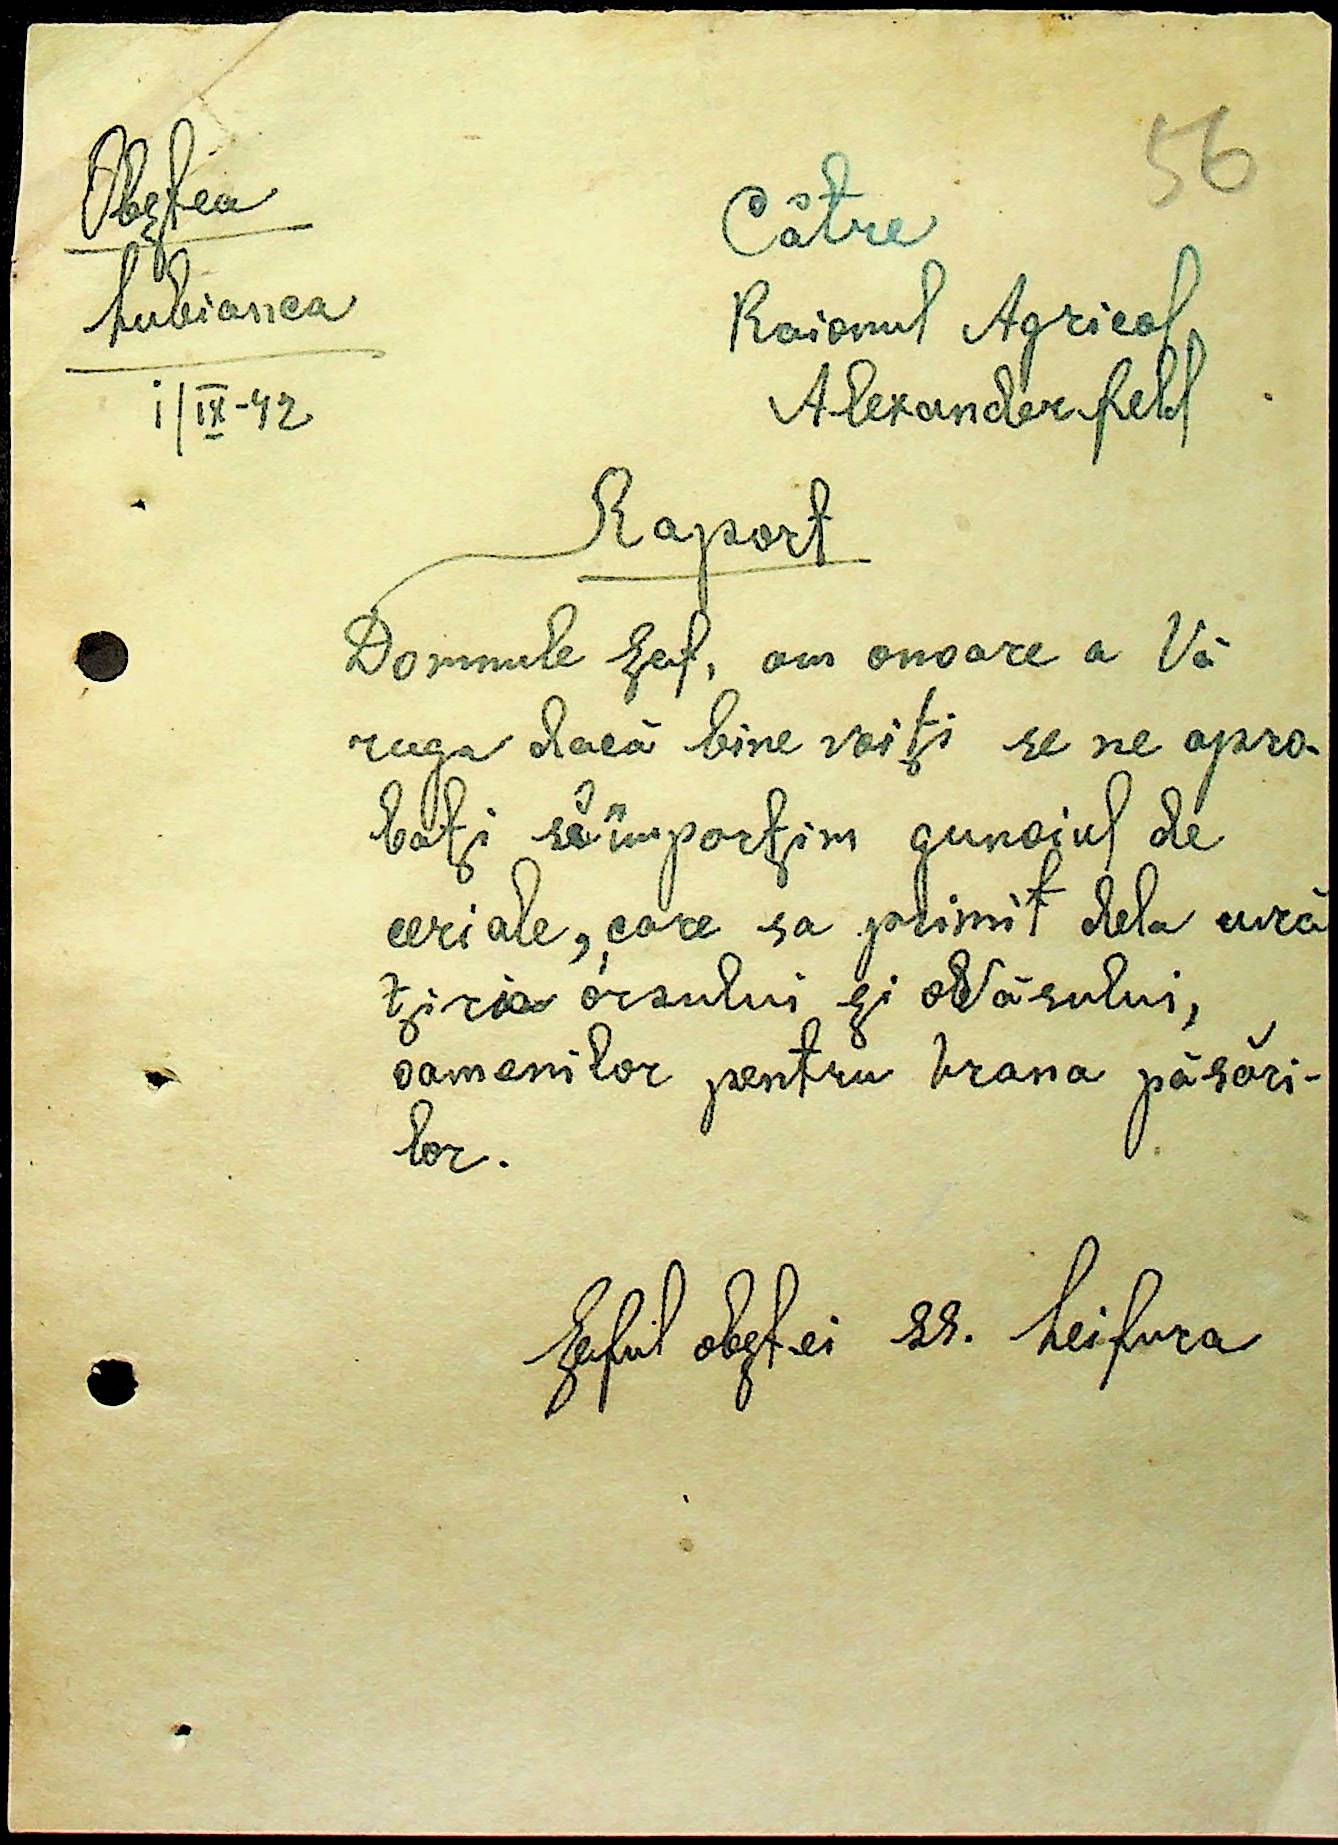 56
Obștea
Lubianca
i/IX-42
Către
Raionul Agricol
Alexanderfeld
Raport
Domnule Șef, am onoare a Vă
ruga dacă bine voiți se ne apro-
bați să împorțim gunoiul de
ceriale, care sa primit dela cură
țiria orsului și ovăsului,
oamenilor pentru hrana păsări-
lor.
Șeful obștei ss. Leifura